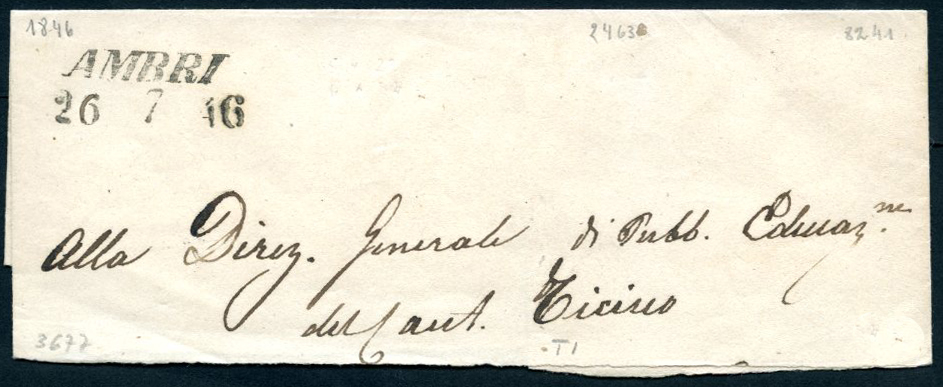 1846 24630 8241
AMBRI
26 7 46
Alla Direz. Generale di Pubb. Educaz.ne
del Cant. Ticino
3677 TI